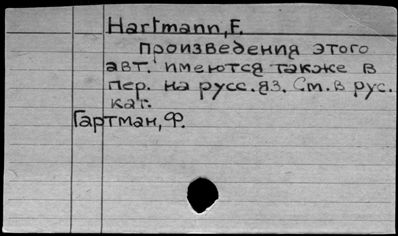 Hartmann, F.
произведения этого
авт. имеются также в
пер. на русс. яз. См. в рус.
кат.
Гартман, Ф.